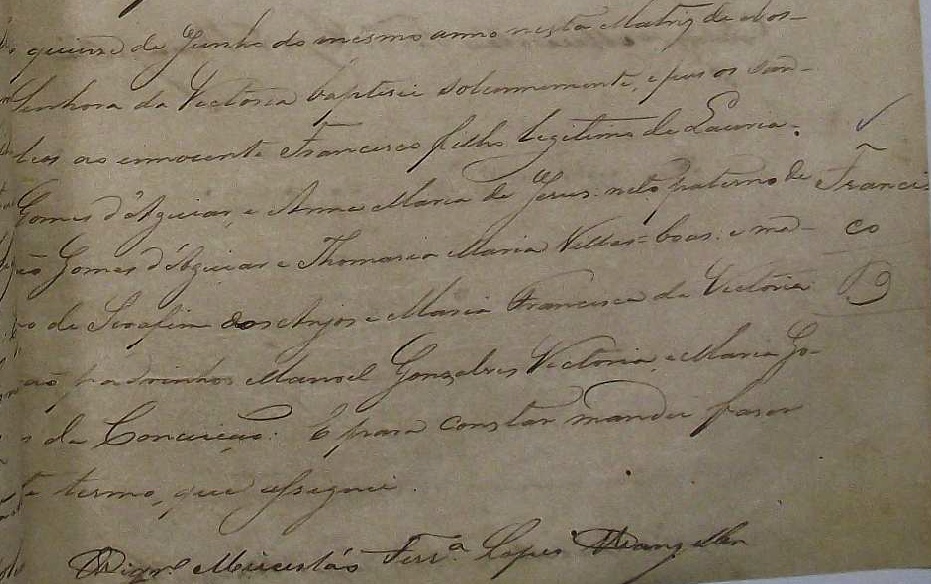 quinze de Junho do mesmo anno nesta Matriz de Nos-
Senhora da Victoria baptisei solemnemente, e pus os San-
tos ao innocente Francisco filho legitimo de
Gomes d'Aguiar, e Anna Maria de Jesus: neto paterno de
ão Gomes d'Aguiar e Thomasia Maria Villas=boas: e ma-
o de Serafim dos Anjos e Maria Francisca da Victoria
ão padrinhos Manoel Gonçalves Victoria, e Maria Go-
s da Conceição: E para constar mandei faser
te termo, que assignei.
Lopes
Francis
co